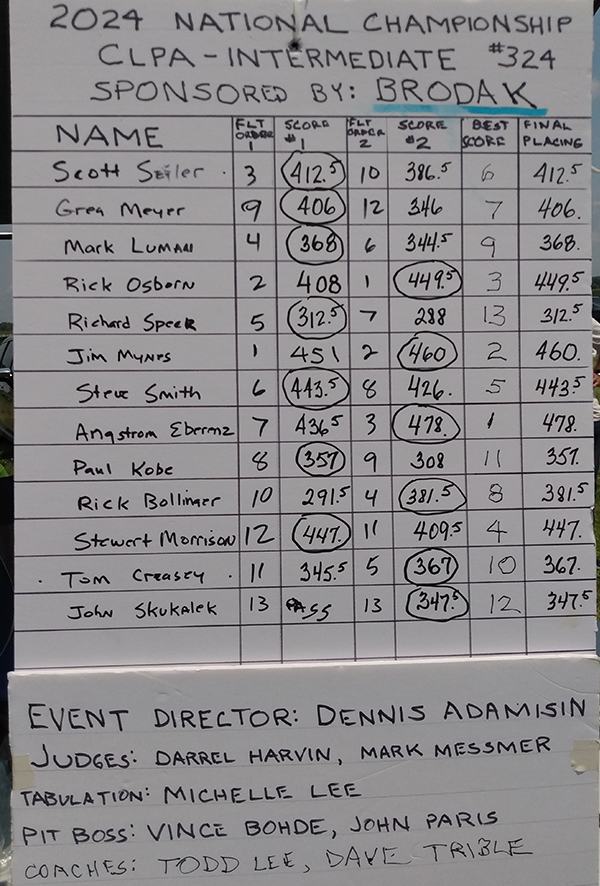 2024 NATIONAL CHAMPIONSHIP
CLPA - INTERMEDIATE #324
SPONSORED BY: BRODAK
NAME FLT ORDER 1 SCORE #1 FLT ORDER 2 SCORE #2 BEST SCORE FINAL PLACING
Scott Seiler 3 412.5 10 386.5 6 412.5
Greg Meyer 9 406 12 346 7 406.
Mark Luman 4 368 6 344.5 9 368.
Rick Osborn 2 408 1 449.5 3 449.5
Richard Speer 5 312.5 7 288 13 312.5
Jim Mynes 1 451 2 460 2 460.
Steve Smith 6 443.5 8 426. 5 443.5
Angstrom Ebernz 7 436.5 3 478. 1 478.
Paul Kobe 8 357 9 308 11 357.
Rick Bollinger 10 291.5 4 381.5 8 381.5
Stewert Morrison 12 447. 11 409.5 4 447.
Tom Creasey 11 345.5 5 367 10 367.
John Skukalek 13 PASS 13 347.5 12 347.5
EVENT DIRECTOR: DENNIS ADAMISIN
JUDGES: DARREL HARVIN, MARK MESSMER
TABULATION: MICHELLE LEE
PIT BOSS: VINCE BOHDE, JOHN PARIS
COACHES: TODD LEE, DAVE TRIBLE